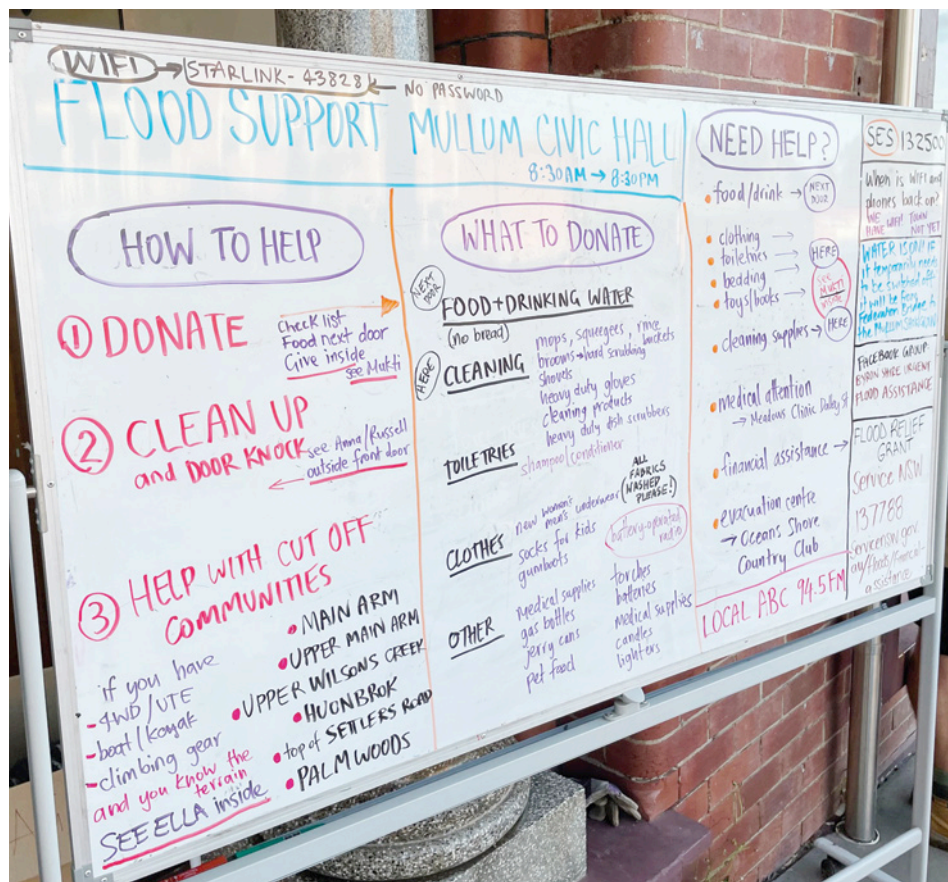 WIFI → STARLINK - 43828 ← NO PASSWORD
FLOOD SUPPORT MULLUM CIVIC HALL
8:30AM → 8:30PM
HOW TO HELP
① DONATE
Check list
Food next door
Give inside
see Mukti
② CLEAN UP
and DOOR KNOCK
see Anna/Russell
outside front door
③ HELP WITH CUT OFF
COMMUNITIES
if you have
- 4WD/UTE
- boat/kayak
- climbing gear
and you know the
terrain
SEE ELLA inside
• MAIN ARM
• UPPER MAIN ARM
• UPPER WILSONS CREEK
• HUONBROK
• top of SETTLERS ROAD
• PALMWOODS
WHAT TO DONATE
NEXT DOOR
FOOD + DRINKING WATER
(no bread)
HERE
CLEANING
mops, squeegees, rmce
brooms → hard scrubbing buckets
shovels
heavy duty gloves
cleaning products
heavy duty dish scrubbers
TOILETRIES
shampoo/conditioner
CLOTHES
new women's
men's underwear
socks for kids
gumboots
(ALL
FABRICS
WASHED
PLEASE!)
battery-operated
radio
OTHER
medical supplies
gas bottles
jerry cans
pet food
torches
batteries
medical supplies
candles
lighters
NEED HELP?
• food/drink → NEXT DOOR
• clothing →
• toiletries → HERE
• bedding →
• toys/books → SEE MUKTI INSIDE
• cleaning supplies → HERE
• medical attention
→ Meadows Clinic Dalley St
• financial assistance →
• evacuation centre
→ Oceans Shore
Country Club
LOCAL ABC 94.5FM
SES 132500
When is WIFI and
phones back on?
WE HAVE WIFI! TOWN NOT YET
WATER IS ON! IF
it temporarily needs
to be switched off
it will be from
Federation Bridge to
the MULLUM
FACEBOOK GROUP:
BYRON SHIRE URGENT
FLOOD ASSISTANCE
FLOOD RELIEF
GRANT
Service NSW
137788
servicensw.gov.
au/floods/financial-
assistance